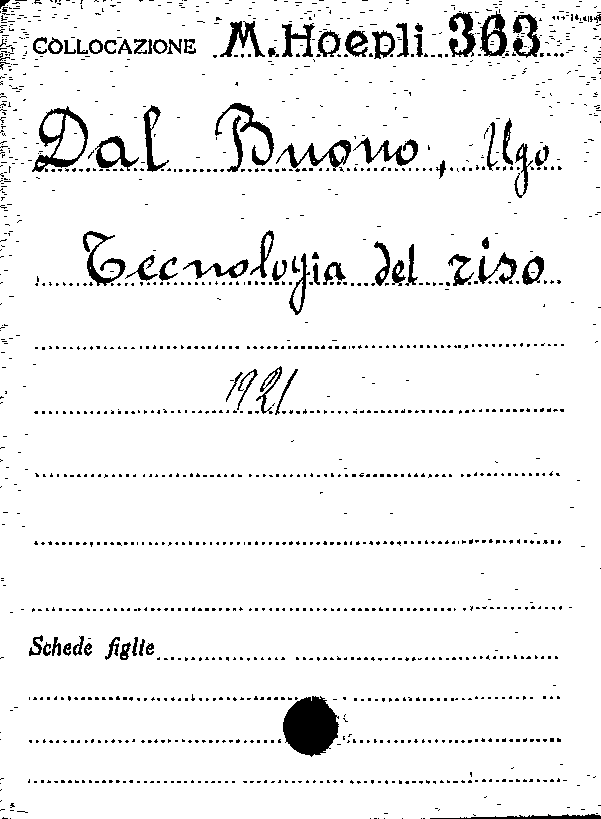 COLLOCAZIONE M. Hoepli 363
Dal Buono, Ugo
Tecnologia del riso
1921
Schede figlie